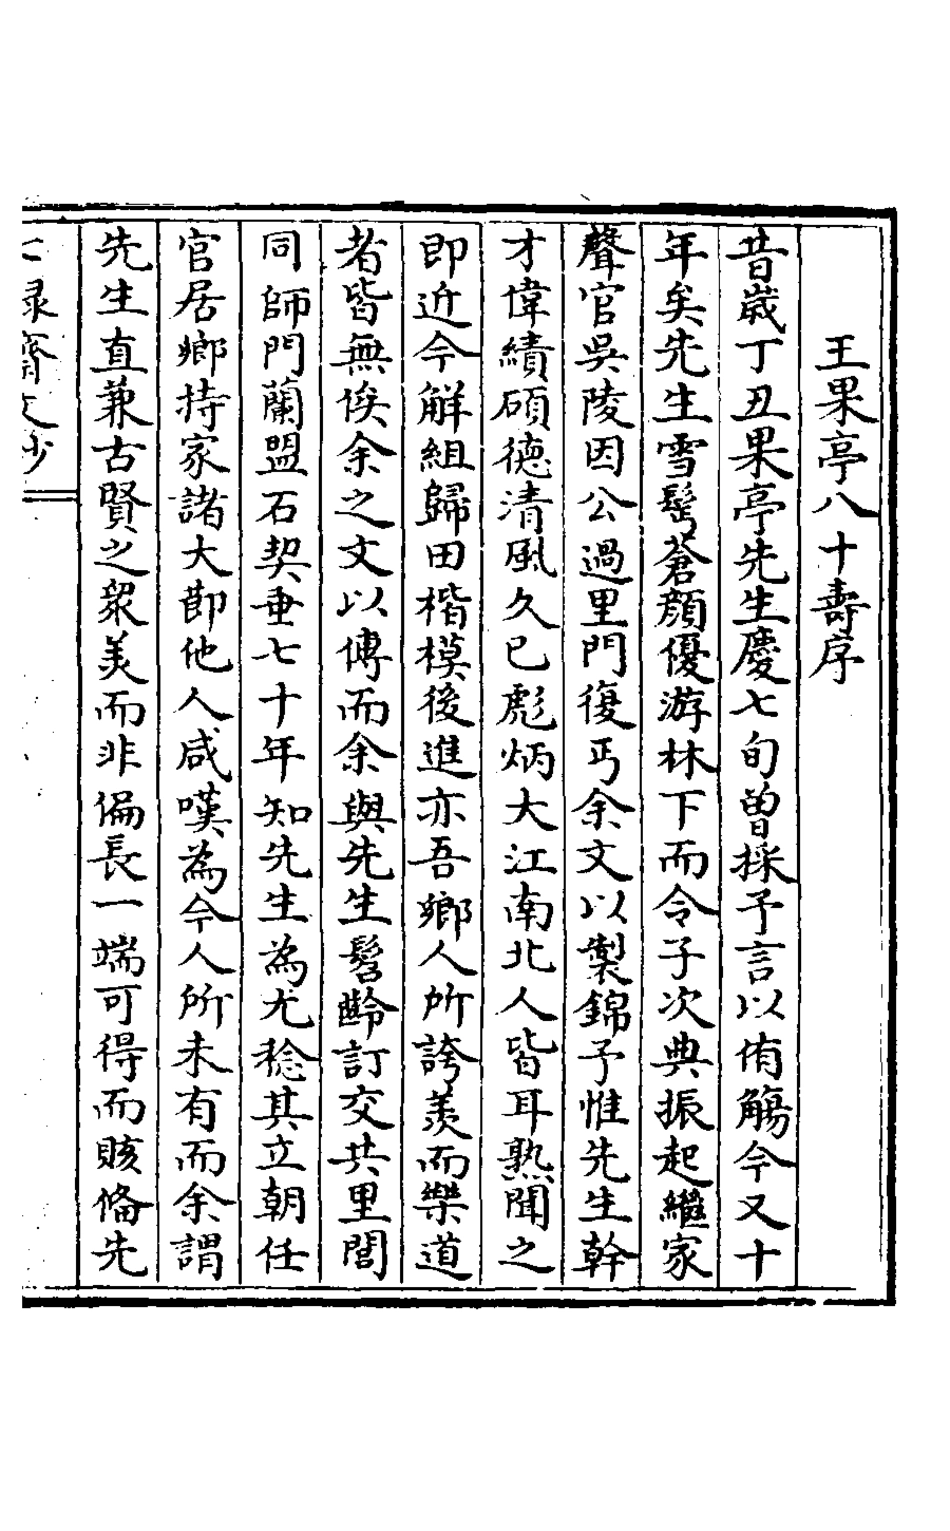 王果亭八十壽序
昔歲丁丑果亭先生慶七旬曾採予言以侑觴今又十
年矣先生雪髩蒼顏優游林下而令子次典振起繼家
聲官吳陵因公過里門復丐余文以製錦予惟先生幹
才偉績碩德清風久已彪炳大江南北人皆耳熟聞之
即近今解組歸田楷模後進亦吾鄉人所誇羨而樂道
者皆無俟余之文以傳而余與先生髫齡訂交共里閭
同師門蘭盟石契垂七十年知先生為尤稔其立朝任
官居鄉持家諸大節他人咸嘆為今人所未有而余謂
先生直兼古賢之衆美而非偏長一端可得而賅備先
七録齋文鈔